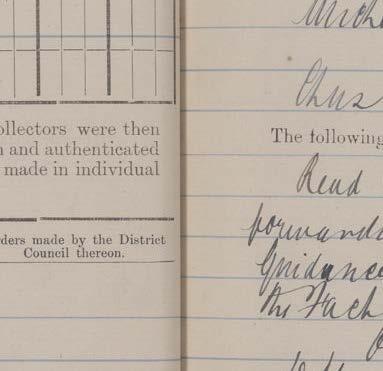 ollectors were then
n and authenticated
made in individual
rders made by the District
Council thereon.
Chas
The following
Read
forwarda
Guidance
the Fact